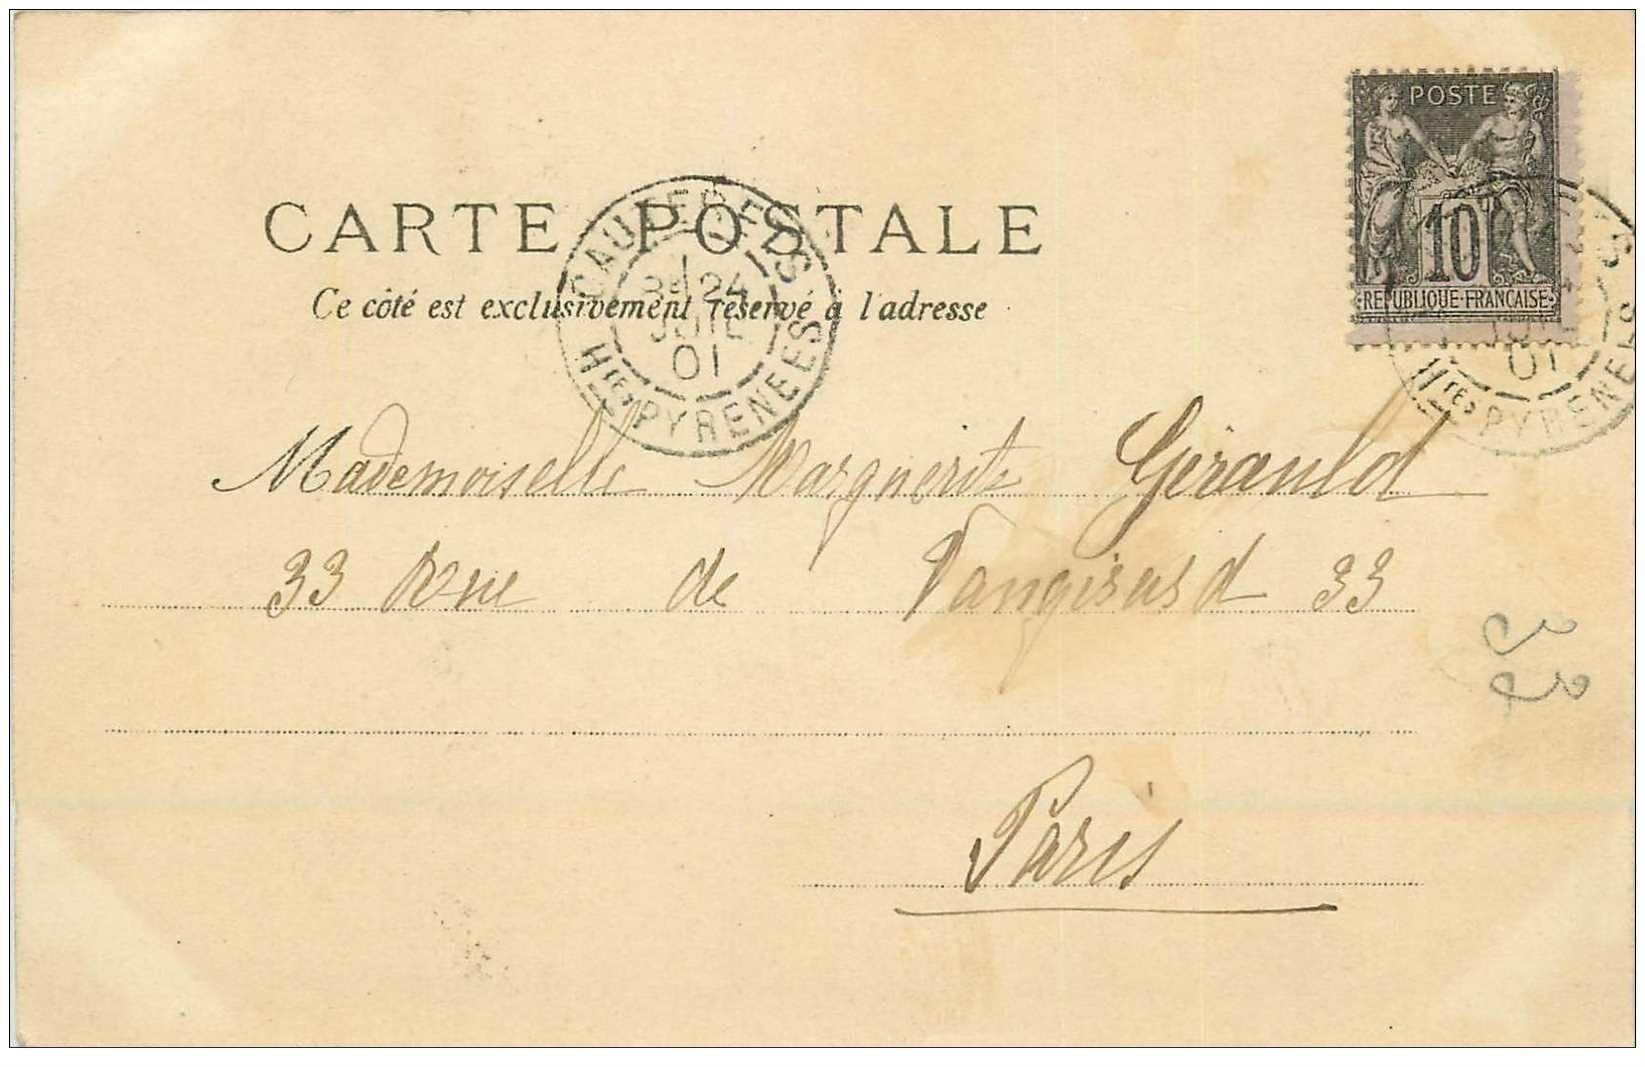 POSTE
10
REPUBLIQUE FRANCAISE
CARTE POSTALE
Ce côté est exclusivement réservé à l'adresse
CAUTERETS
24
JUIL
01
Htes PYRENEES
Mademoiselle Marguerite Gérauld
33 Rue de Vaugirard 33
Paris